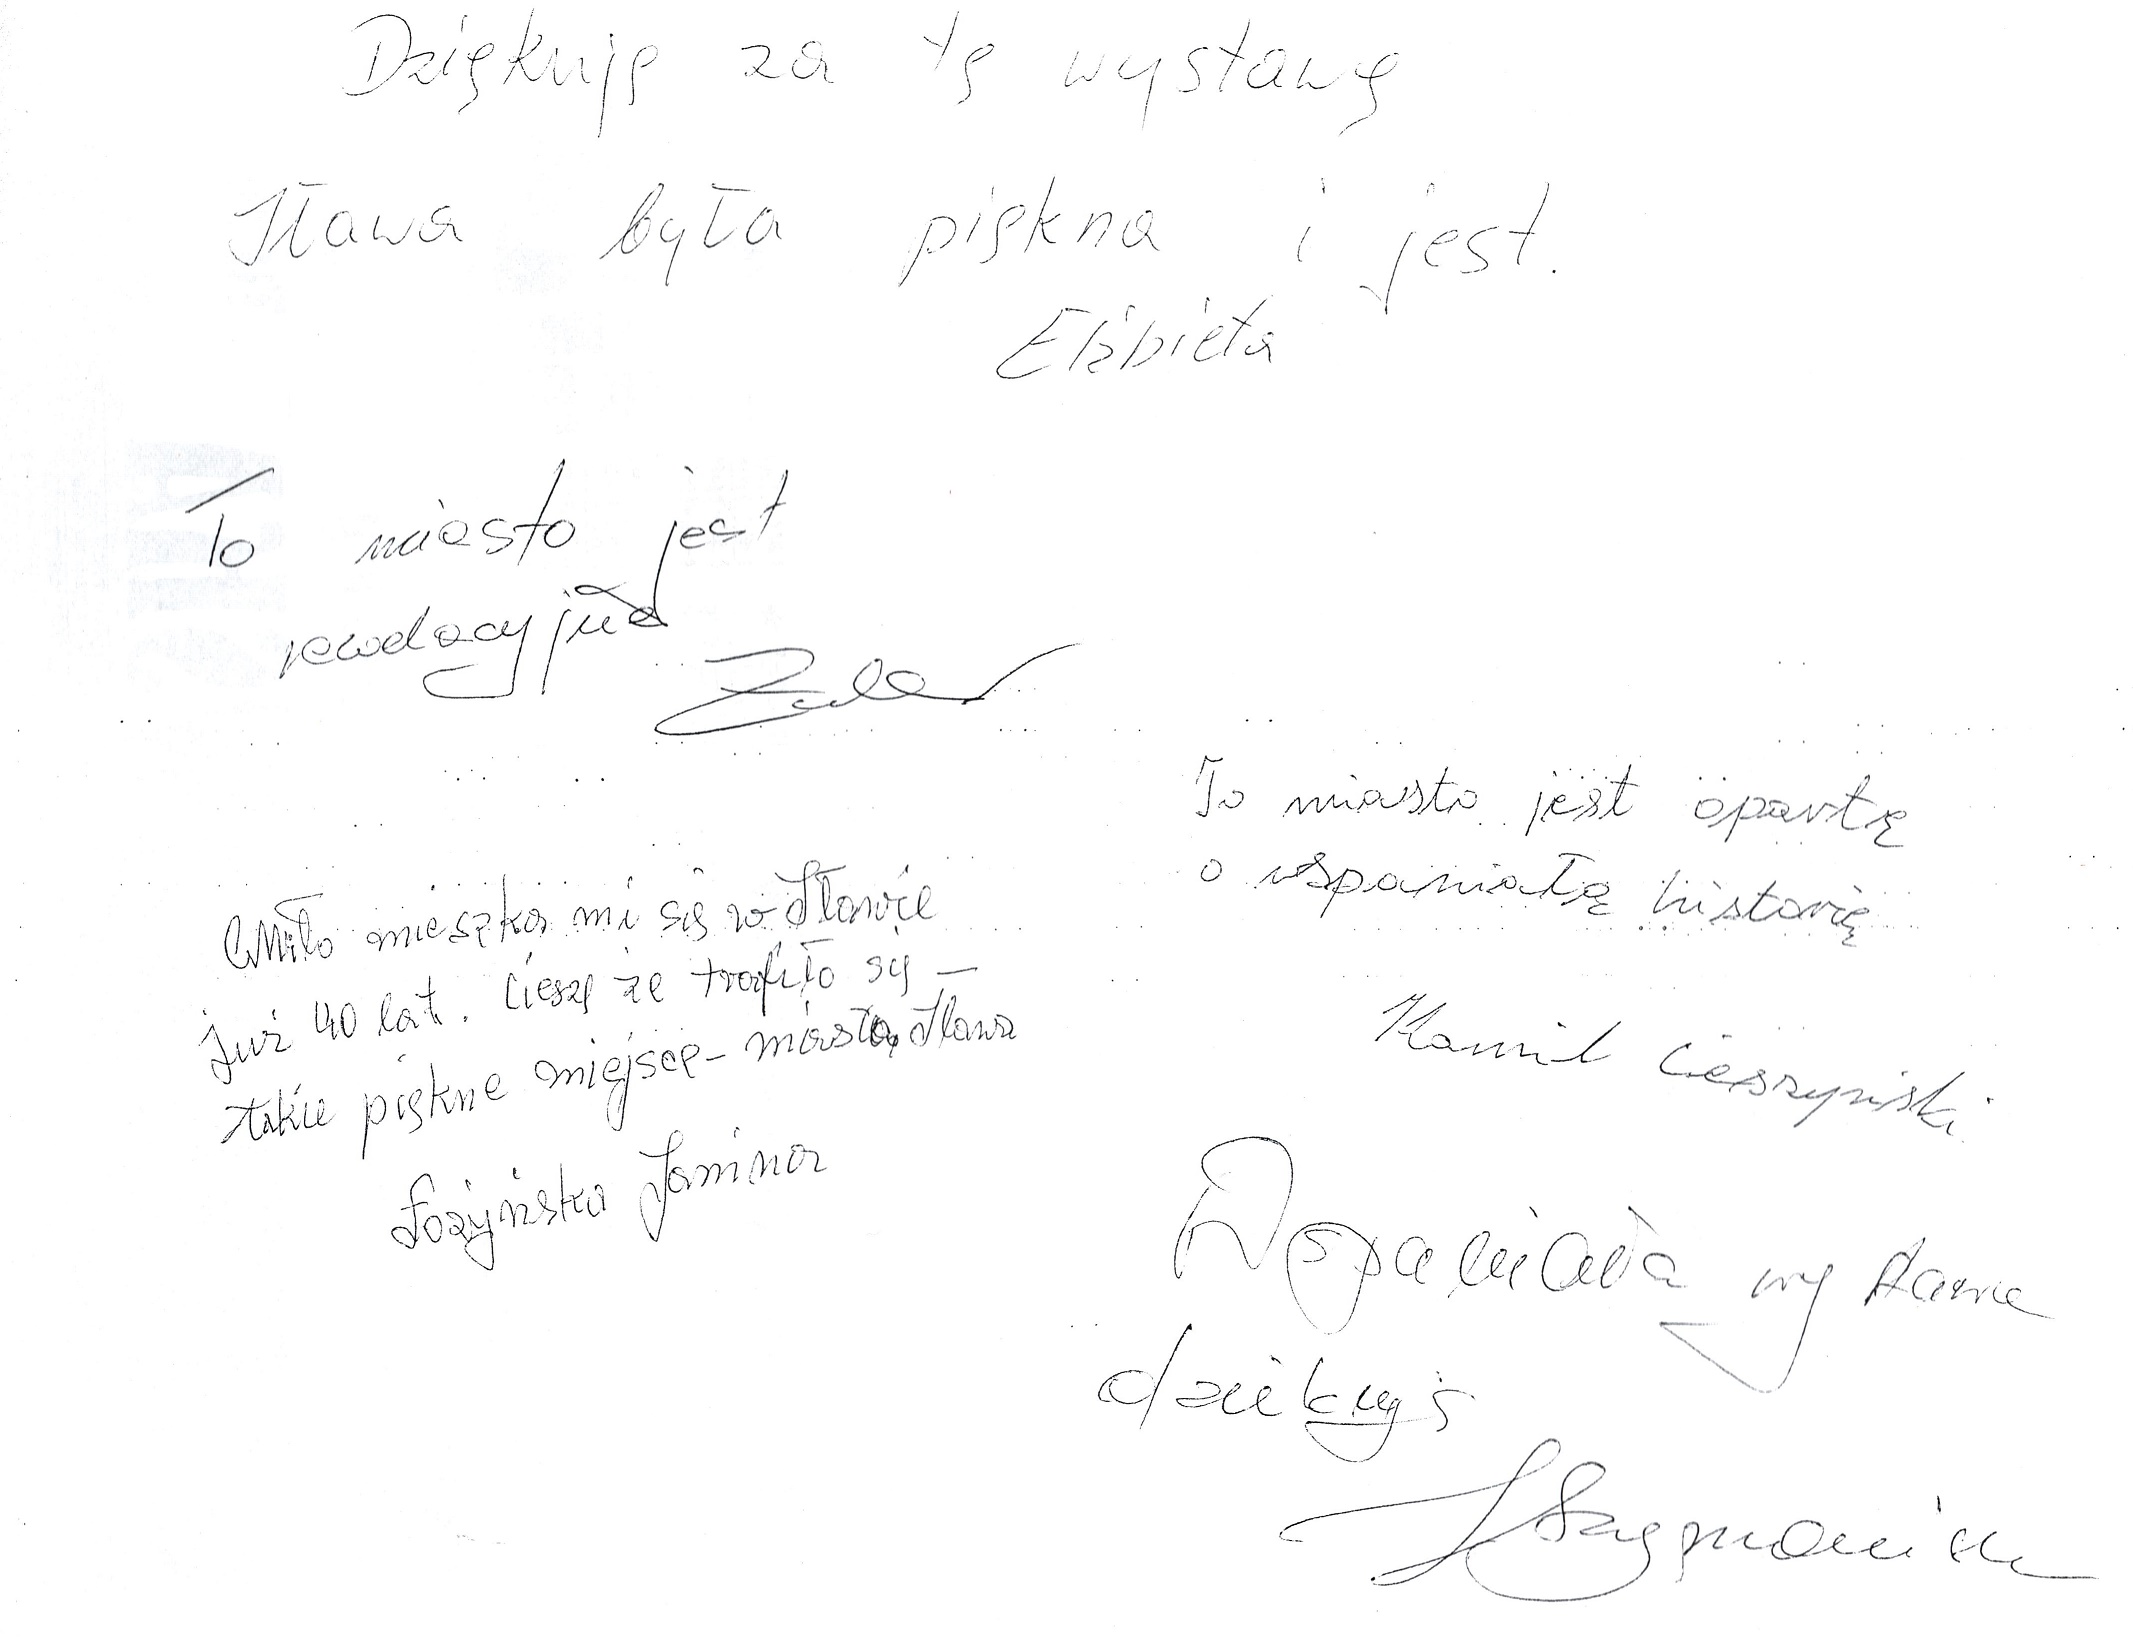 Dziękuję za tę wystawę
Iława była piękna i jest.
Elżbieta
To miasto jest
rewelacyjne
Miło mieszka mi się w Iławie
już 40 lat. Cieszę że trafiło się –
takie piękne miejsce – miasto, Iława
Łożyńska Janina
To miasto jest opartę
o wspaniałą historię
Kamil Cieszyński
Wspaniała wystawa
dziekuję